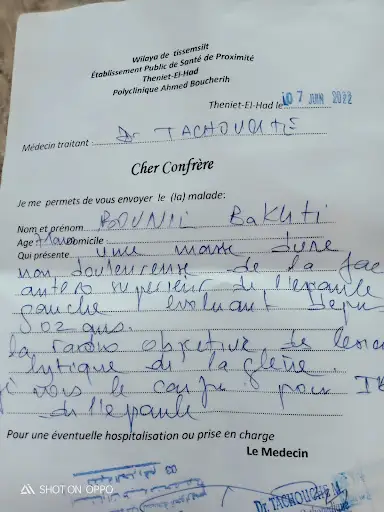 Wilaya de tissemsilt
Établissement Public de Santé de Proximité
Theniet-El-Had
Polyclinique Ahmed Boucherih
Theniet-El-Had le 07 JUIN 2022
Médecin traitant : Dr TACHOUCHE
Cher Confrère
Je me permets de vous envoyer le (la) malade:
Nom et prénom BOUNIL Bakhti
Age domicile :
Qui présente une masse dure
non douloureuse de la fac
antero superieur de l'epaule
gauche evoluant depui
02 ans.
la radio objective de lesion
lytique de la glène.
vers le pour
de l'epaule
Pour une éventuelle hospitalisation ou prise en charge
Le Medecin
Dr. TACHOUCHE
SHOT ON OPPO